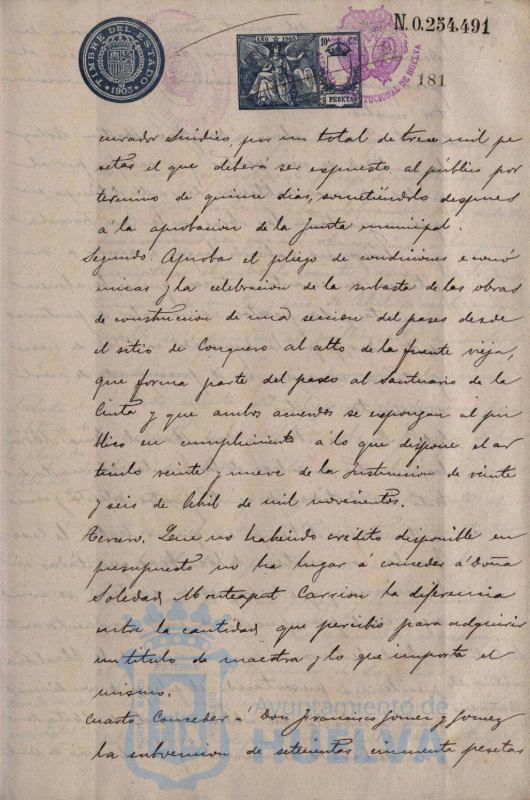 TIMBRE DEL ESTADO
*1905*
AÑO 1905
10ª Cª
2 PESETAS
N.0.254.491
CONSTITUCIONAL DE HUELVA
181
curador Sindico, por un total de trece mil pe
setas el que deberá ser espuesto al público por
término de quince dias, sometiéndolo despues
á la aprobacion de la Junta municipal.
Segundo. Aprobar el pliego de condiciones econó
micas y la celebracion de la subasta de las obras
de construccion de una seccion del paseo desde
el sitio de Conquero al alto de la fuente vieja,
que forma parte del paseo al Santuario de la
Cinta y que ambos acuerdos se espongan al pú
blico en cumplimiento á lo que dispone el ar
tículo veinte y nueve de la Instruccion de veinte
y seis de Abril de mil novecientos.
Tercero. Que no habiendo crédito disponible en
presupuesto no ha lugar á conceder á Doña
Soledad Carrion la diferencia
entre la cantidad que percibió para adquirir
un titulo de maestra y lo que importa el
mismo.
Cuarto Conceder á Don Francisco Gomez y Gomez
la subvencion de setecientas cincuenta pesetas
Ayuntamiento de
HUELVA